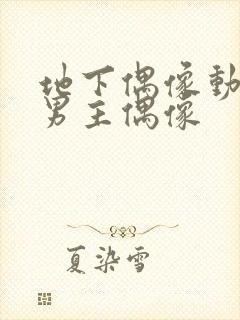 地下偶像動
男主偶像
夏染雪